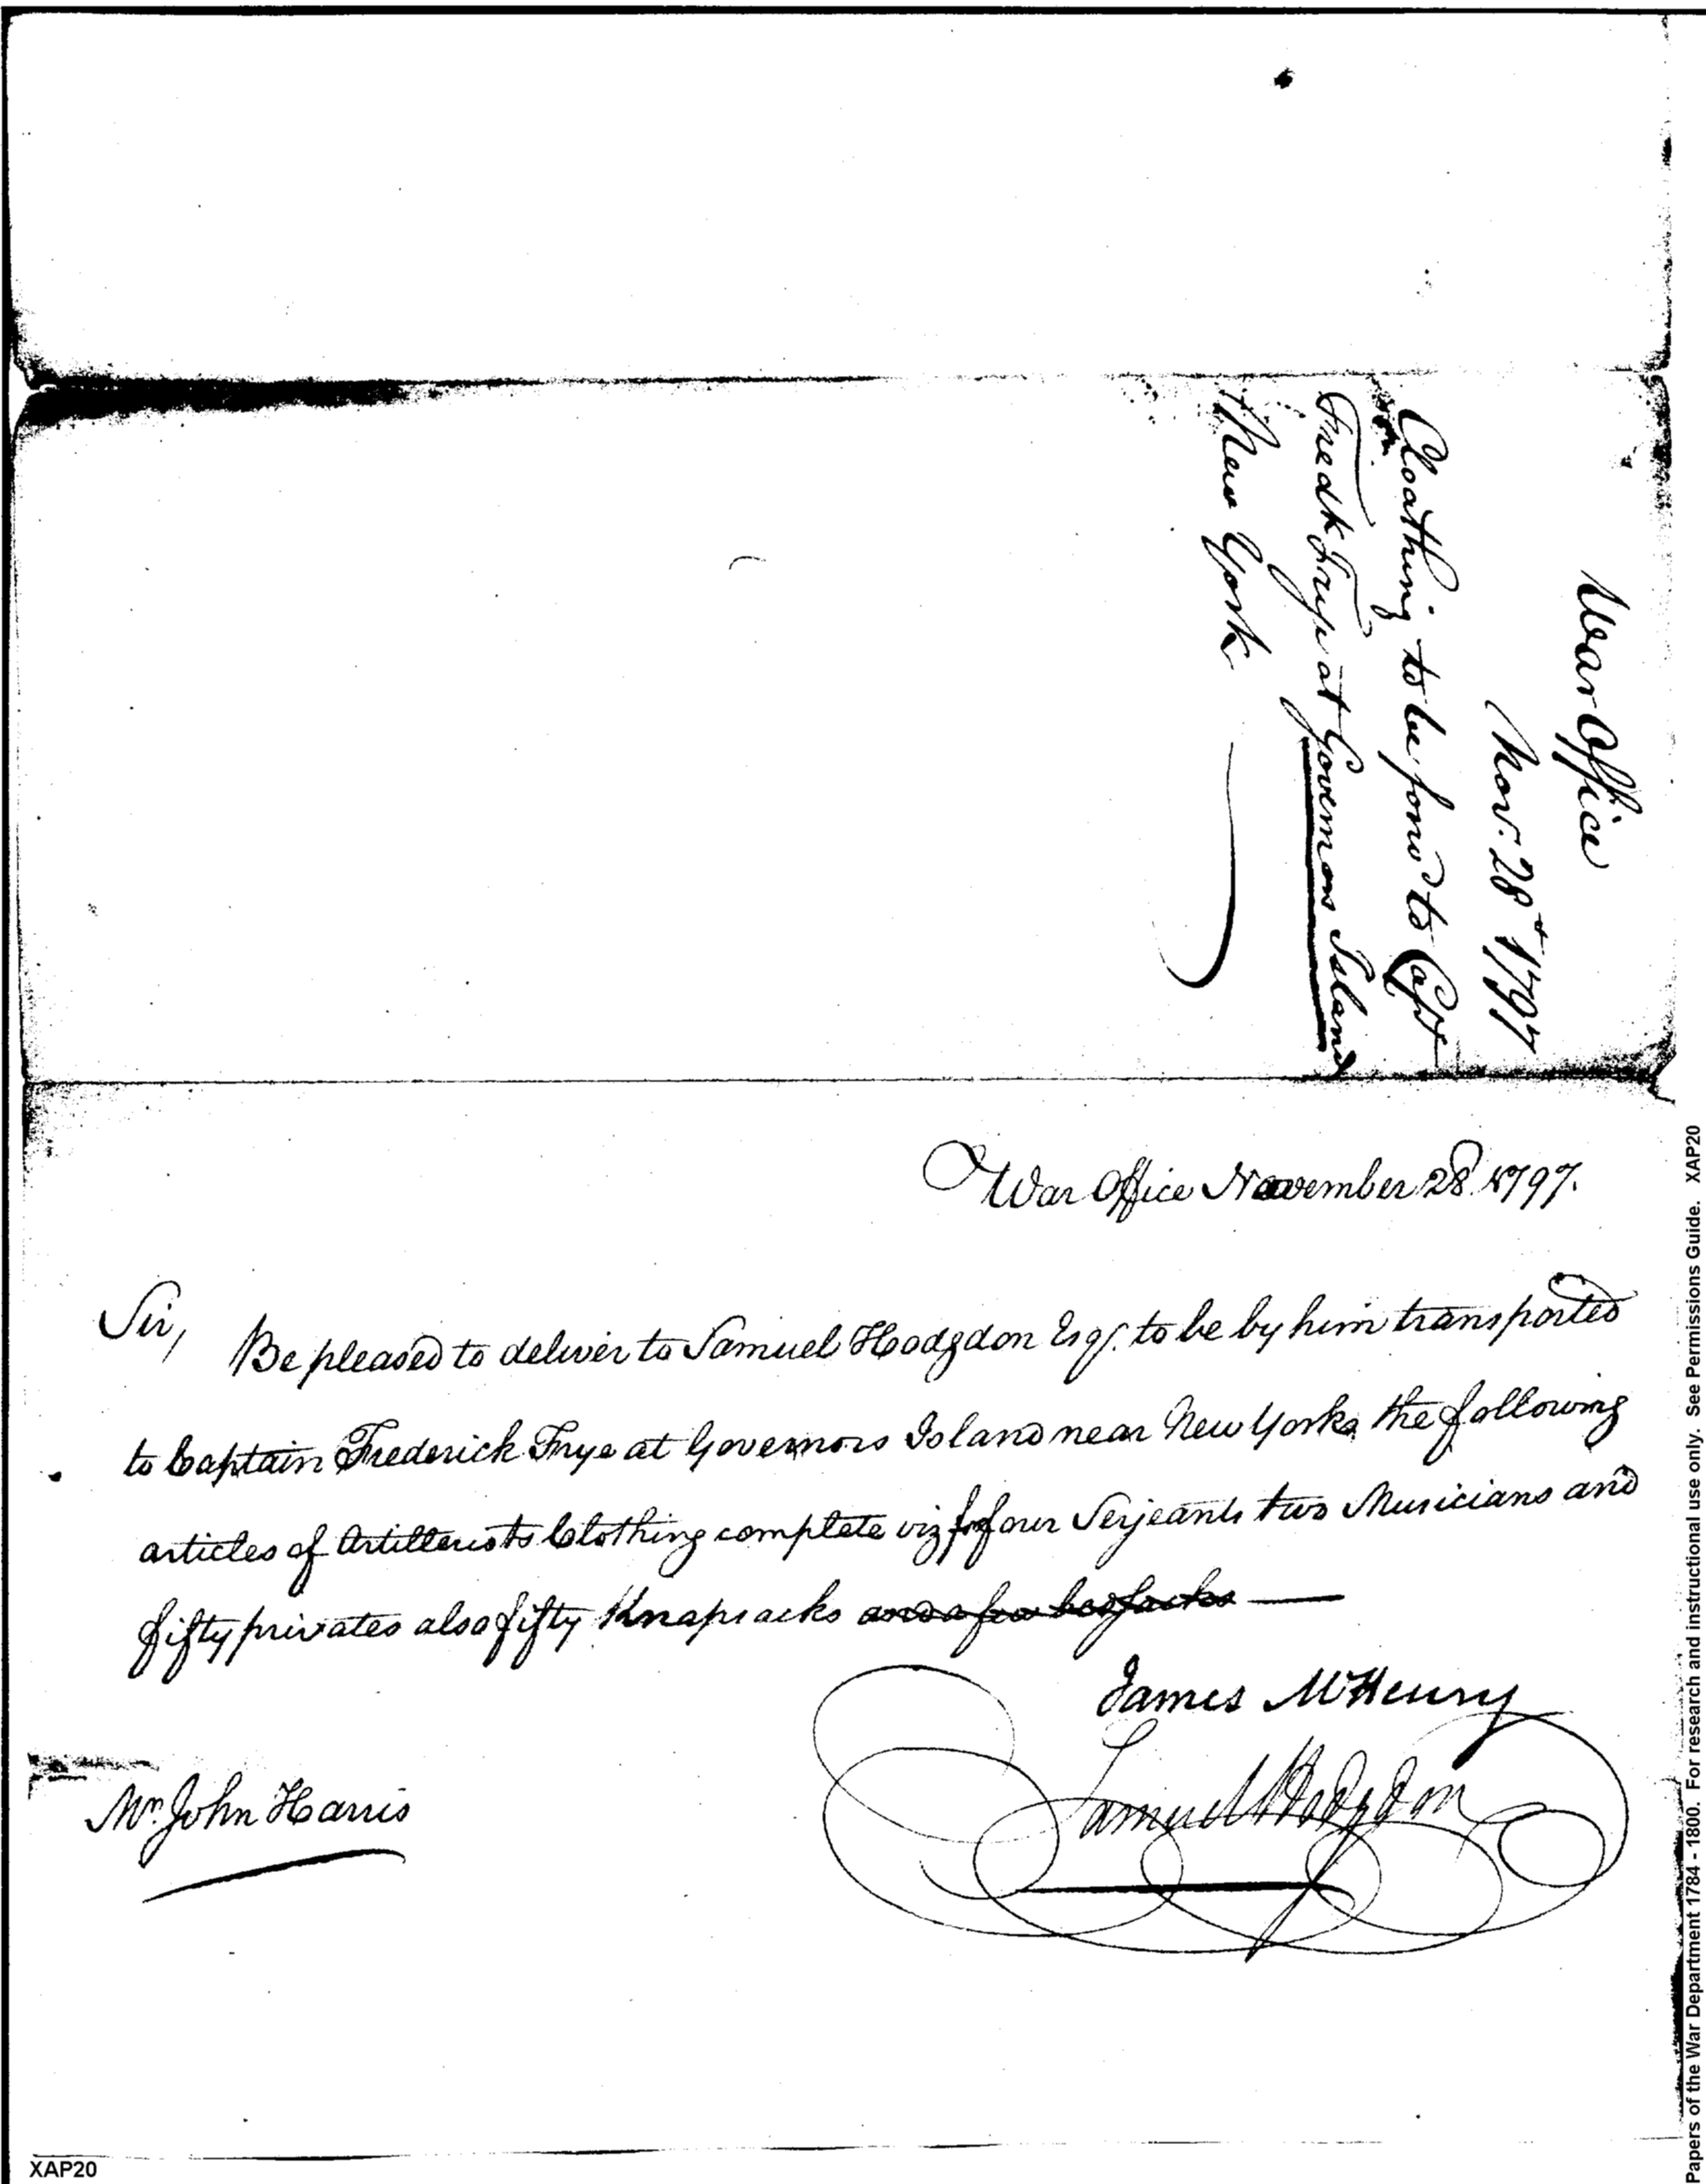 War Office
Nov. 28th 1797
Cloathing to be forwd to Capt
Fredk Frye at Governors Island
New York
War Office November 28. 1797.
Sir,
Be pleased to deliver to Samuel Hodgdon Esqr. to be by him transported
to Captain Frederick Frye at Governors Island near New York, the following
articles of Artillerists Clothing complete viz for four Serjeants two Musicians and
fifty privates also fifty Knapsacks and a few
James McHenry
Samuel Hodgdon
Mr. John Harris
XAP20
Papers of the War Department 1784 - 1800. For research and instructional use only. See Permissions Guide. XAP20